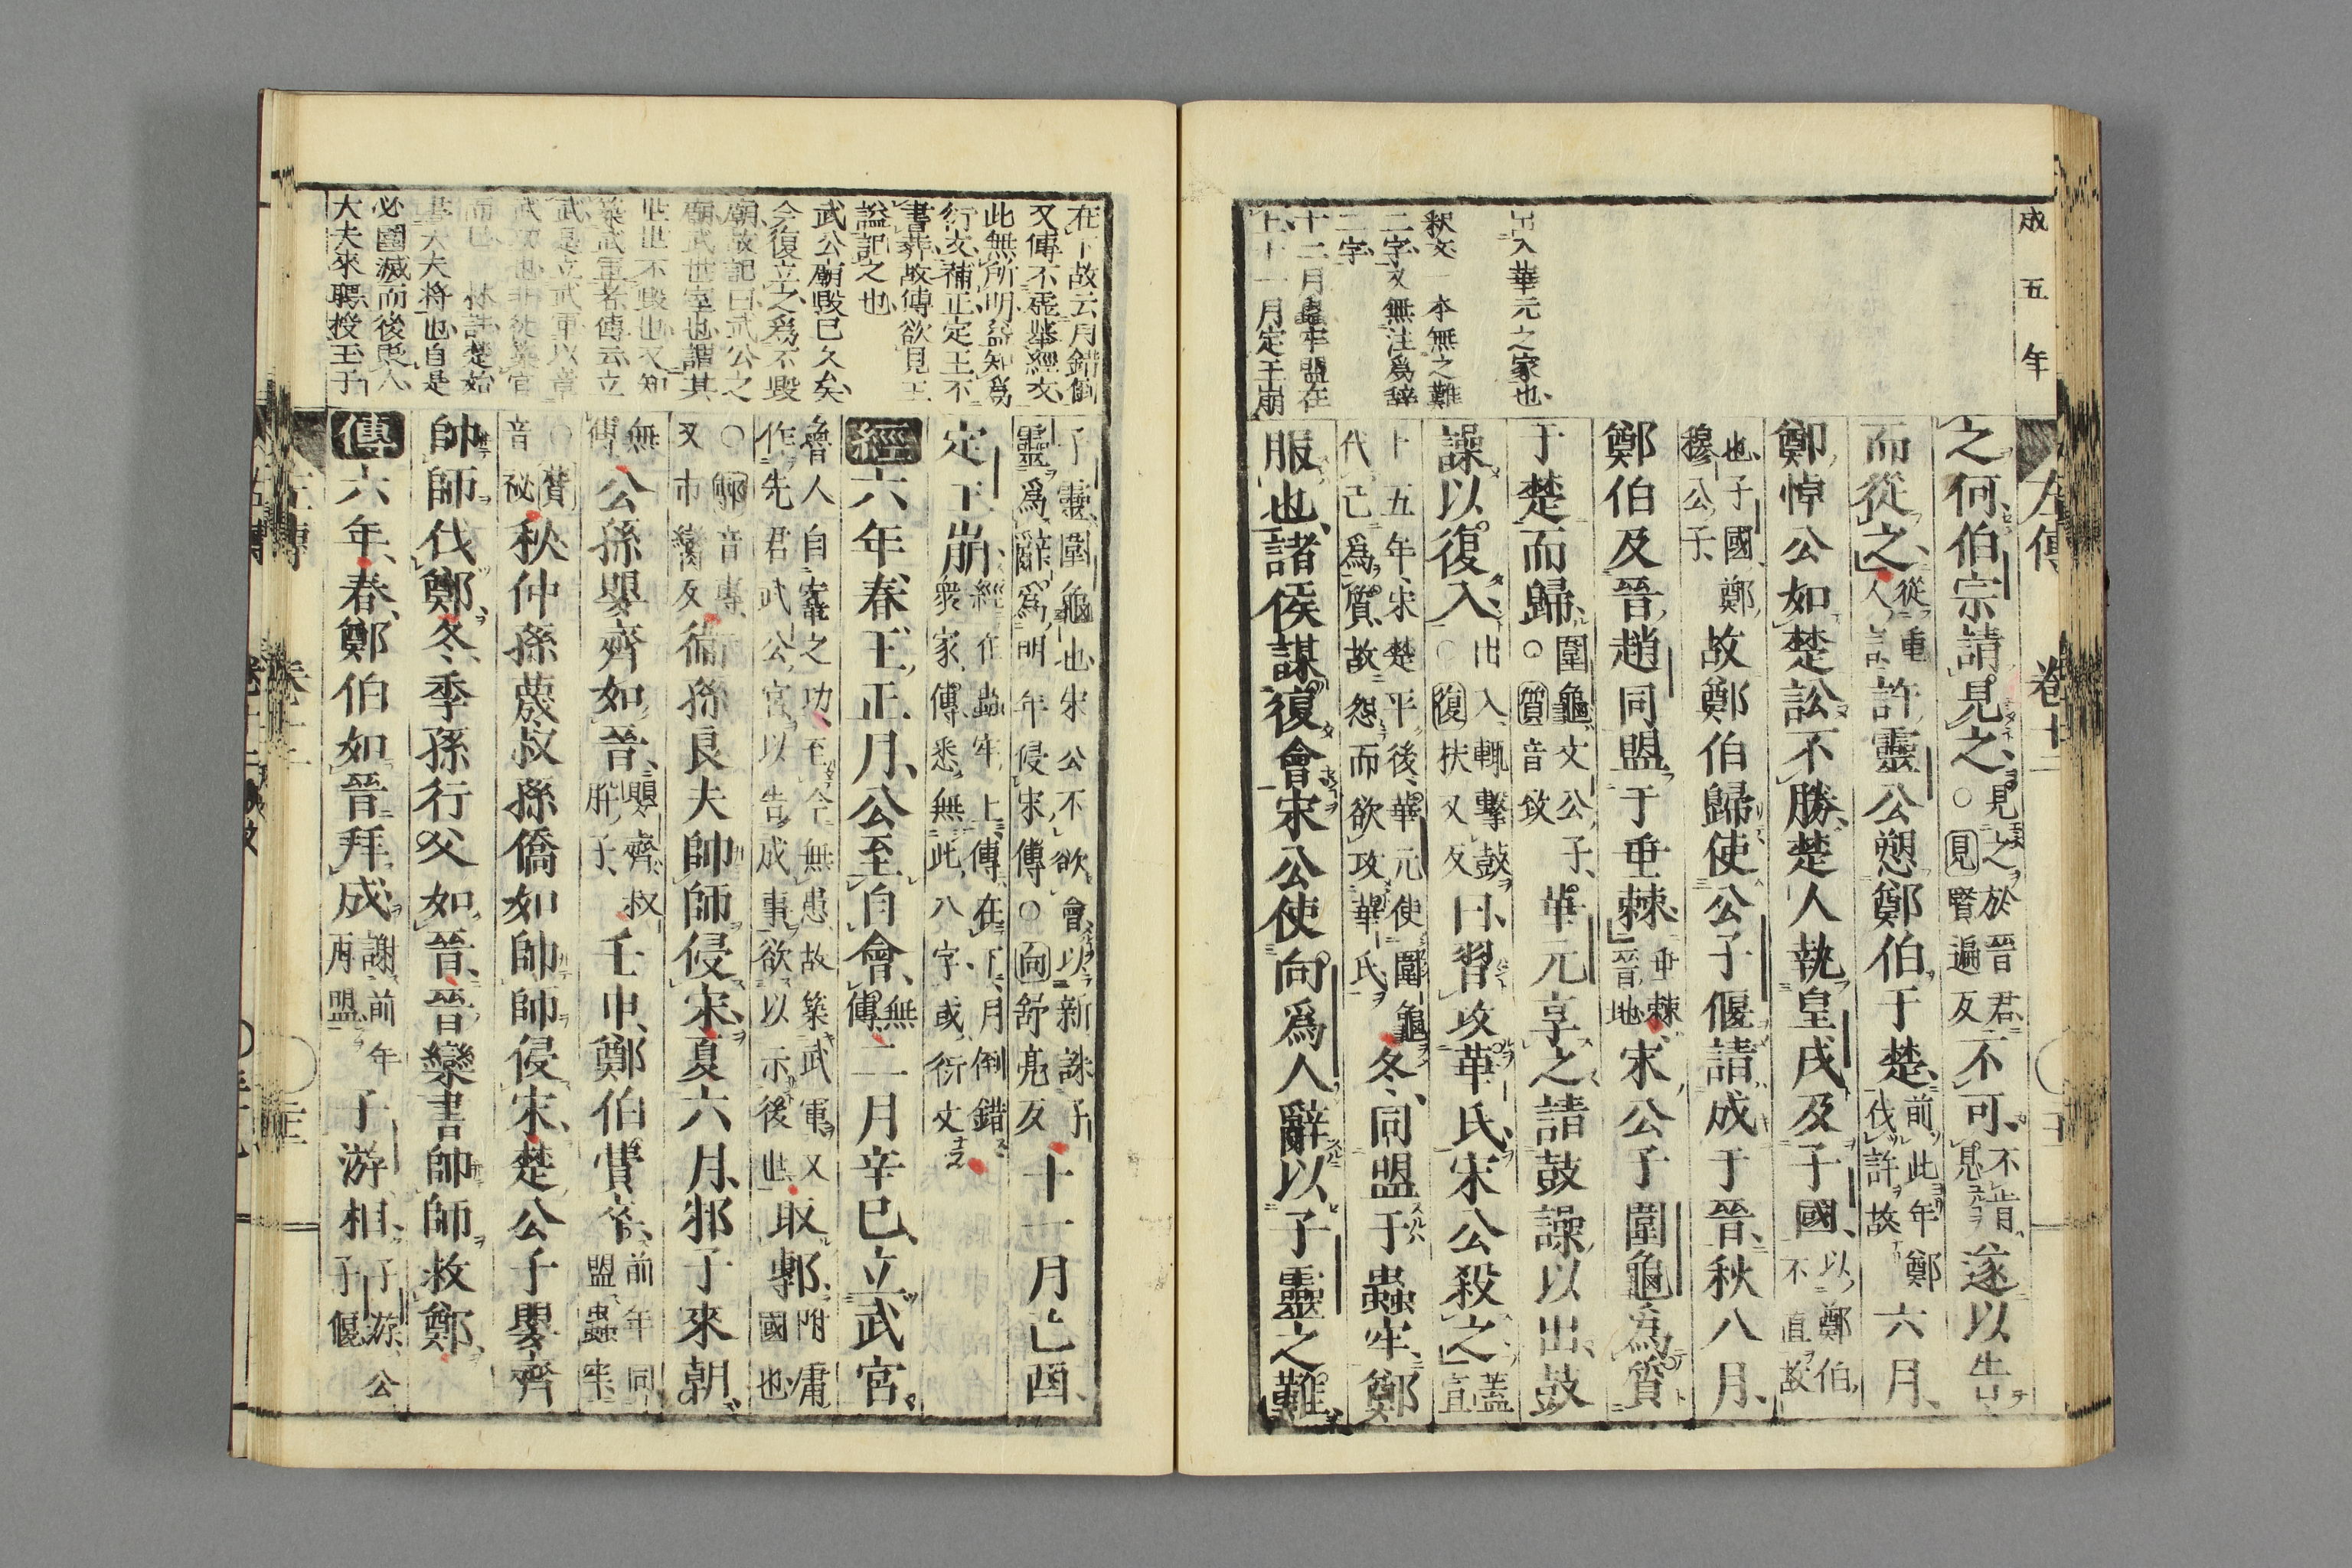 成五年
左傳 卷十二
出入華元之家也
釈文一本無之難
二字又無注爲辞
二字
十二月蟲牢盟在
上十一月定王崩
之何伯宗請見之見之於晉君○見賢遍反不可不肯見遂以告
而從之從重人言許靈公愬鄭伯于楚前此年鄭伐許故六月
鄭悼公如楚訟不勝楚人執皇戌及子國以鄭伯不直故
也子國鄭穆公子故鄭伯歸使公子偃請成于晉秋八月
鄭伯及晉趙同盟于垂棘垂棘晉地宋公子圍龜爲質
于楚而歸圍龜文公子○質音致華元享之請鼓譟以出鼓
譟以復入出入輒擊鼓○復扶又反曰習攻華氏宋公殺之蓋宣
十五年宋楚平後華元使圍龜代己爲質故怨而欲攻華氏冬同盟于蟲牢鄭
服也諸侯謀復會宋公使向爲人辭以子靈之難
在下故云月錯倒
又傳不虛舉經文
此無所明益知爲
衍文補正定王不
書葬故傳欲見王
謚記之也
武公廟毀已久矣
今復立之爲不毀
廟故記曰武公之
廟武世室也謂其
世世不毀也又知
築武軍者傳云立
武是立武軍以章
武功也非徒築宮
而已 林註楚始
書大夫將也自是
必國滅而後奧人
大夫來聘授玉于
子靈圍龜也宋公不欲會以新誅子靈爲辭爲明年侵宋傳○向舒亮反十一月己酉
定王崩經在蟲牢上傳在下月倒錯衆家傳悉無此八字或衍文
經六年春王正月公至自會無傳二月辛巳立武宮
魯人自鞌之功至今無患故築武軍又作先君武公宮以告成事欲以示後世取鄟附庸國也
○鄟音專又市臠反衛孫良夫帥師侵宋夏六月邾子來朝
無傳公孫嬰齊如晉嬰齊叔肸子壬申鄭伯費卒前年同盟蟲牢
○費音祕秋仲孫蔑叔孫僑如帥師侵宋楚公子嬰齊
帥師伐鄭冬季孫行父如晉晉欒書帥師救鄭
傳六年春鄭伯如晉拜成謝前年再盟子游相子游公子偃